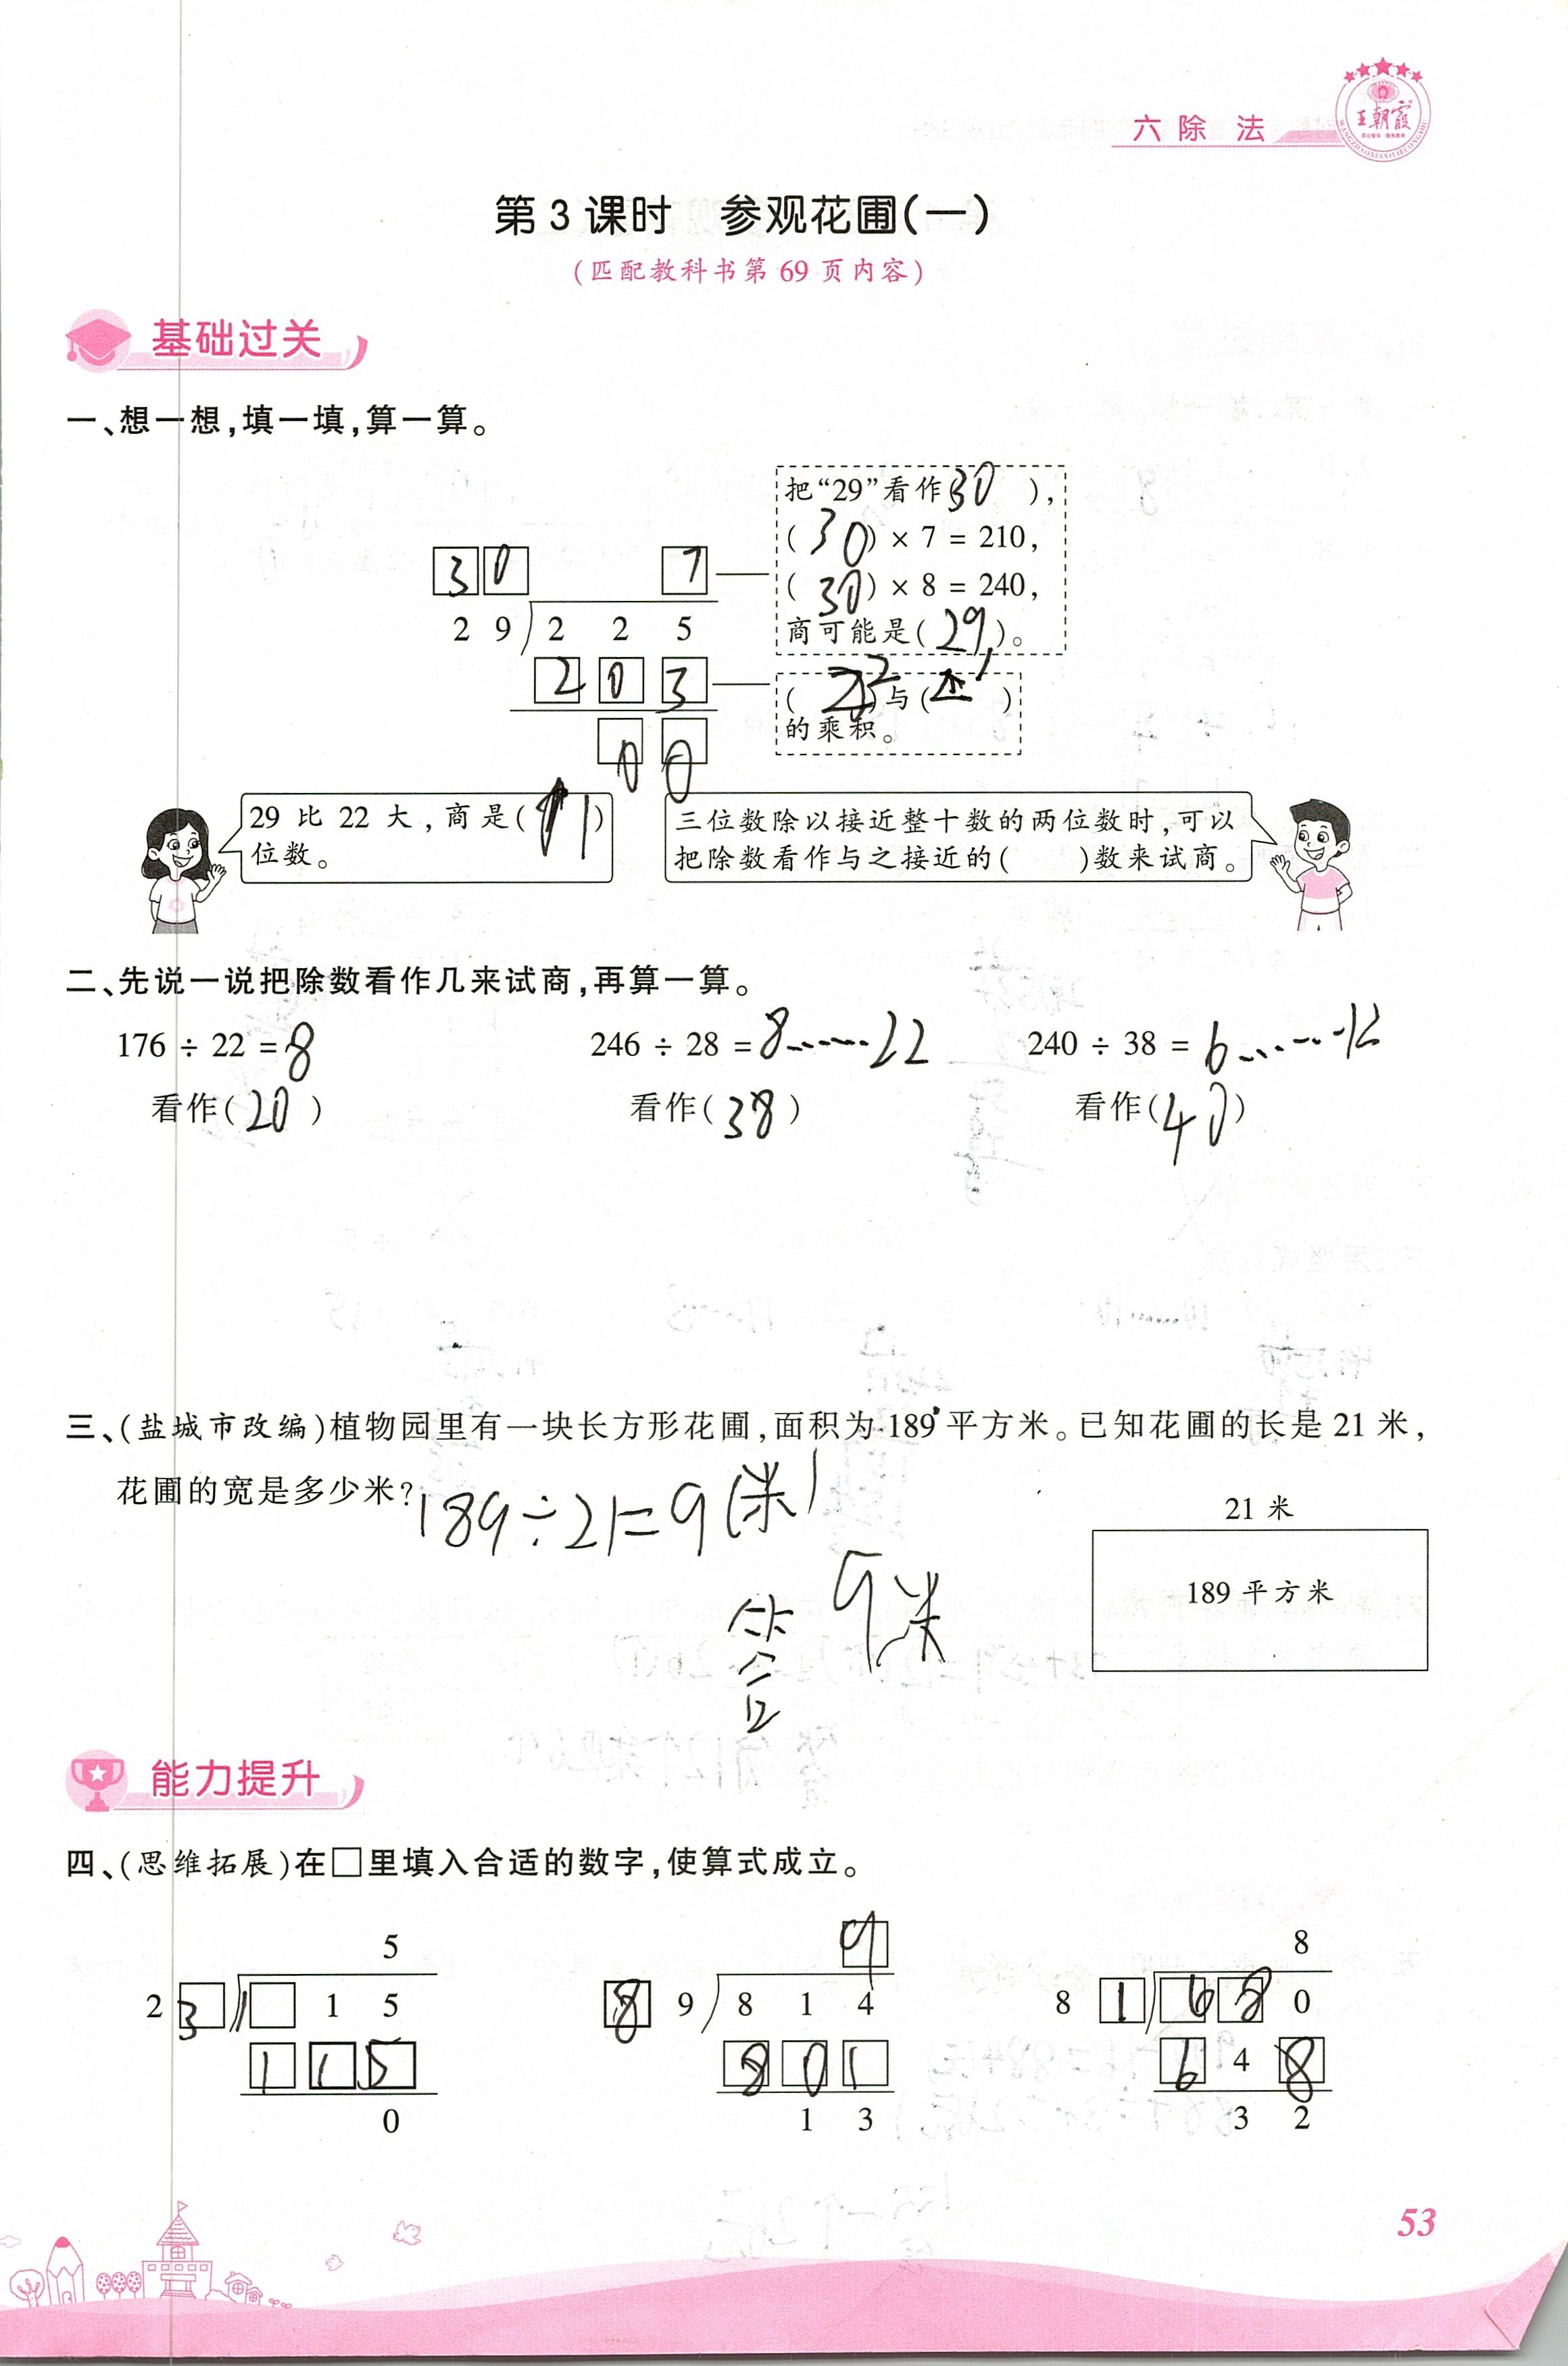 六 除 法
王朝霞
第 3 课时 参观花圃(一)
(匹配教科书第 69 页内容)
基础过关
一、想一想,填一填,算一算。
把“29”看作(30),
(30) × 7 = 210,
(30) × 8 = 240,
商可能是(29)。
3 0 7
2 9 2 2 5
2 0 3
( )与( )
的乘积。
0 0
29 比 22 大,商是( 1)
位数。
三位数除以接近整十数的两位数时,可以
把除数看作与之接近的( )数来试商。
二、先说一说把除数看作几来试商,再算一算。
176 ÷ 22 = 8 246 ÷ 28 = 8……22 240 ÷ 38 = 6……12
看作(20) 看作(38) 看作(40)
三、(盐城市改编)植物园里有一块长方形花圃,面积为 189 平方米。已知花圃的长是 21 米,
花圃的宽是多少米?
189÷21=9(米)
答 9米
21 米
189 平方米
能力提升
四、(思维拓展)在□里填入合适的数字,使算式成立。
5 9 8
2 3 1 □ 1 5 8 9 8 1 4 8 1 6 8 0
1 1 5 8 0 1 6 4 8
0 1 3 3 2
53